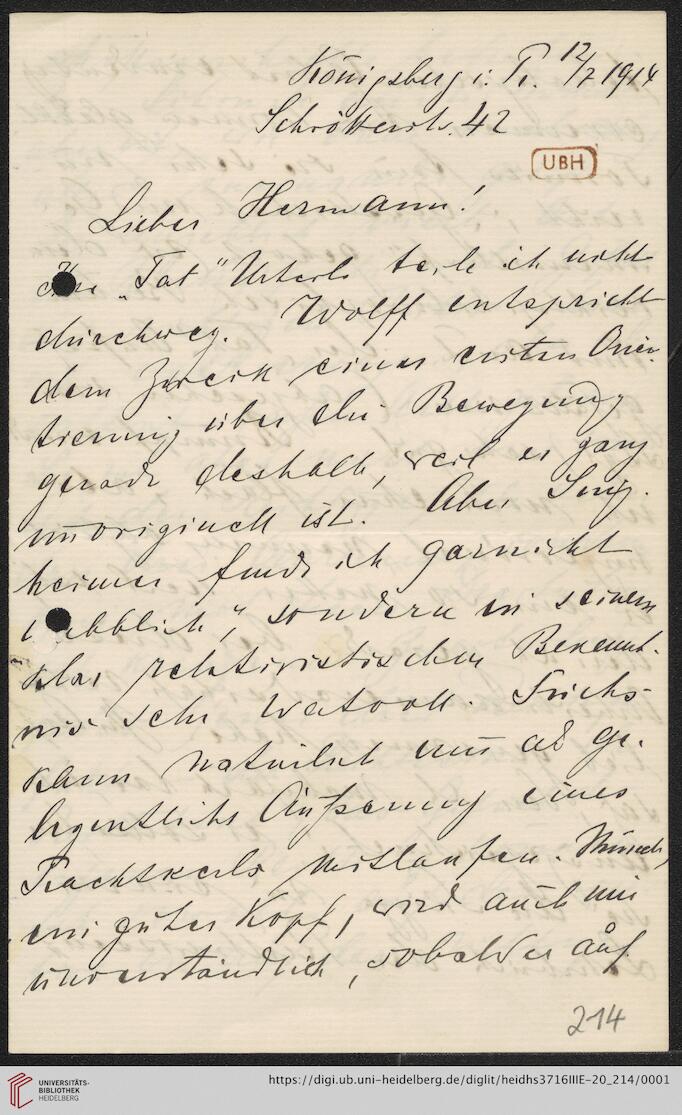 Königsberg i. Pr. 12/7 1914
Schrötterstr. 42
UBH
Lieber Hermann!
"Tat" Urteile teile ich nicht
durchweg. Wolff entspricht
dem Zweck einer ersten Orien-
tierung über die Bewegung
gerade deshalb, weil er ganz
unoriginell ist. Aber Sing-
heimer finde ich garnicht
sondern in seinem
klar relativistischen Bekennt-
nis sehr wertvoll. Fuchs
kann natürlich nur als ge-
legentliche Äußerung eines
Prachtkerls mitlaufen.
ein guter Kopf, wird auch mir
unverständlich, sobald er auf
214
UNIVERSITÄTS-
BIBLIOTHEK
HEIDELBERG
https://digi.ub.uni-heidelberg.de/diglit/heidhs3716IIIE-20_214/0001